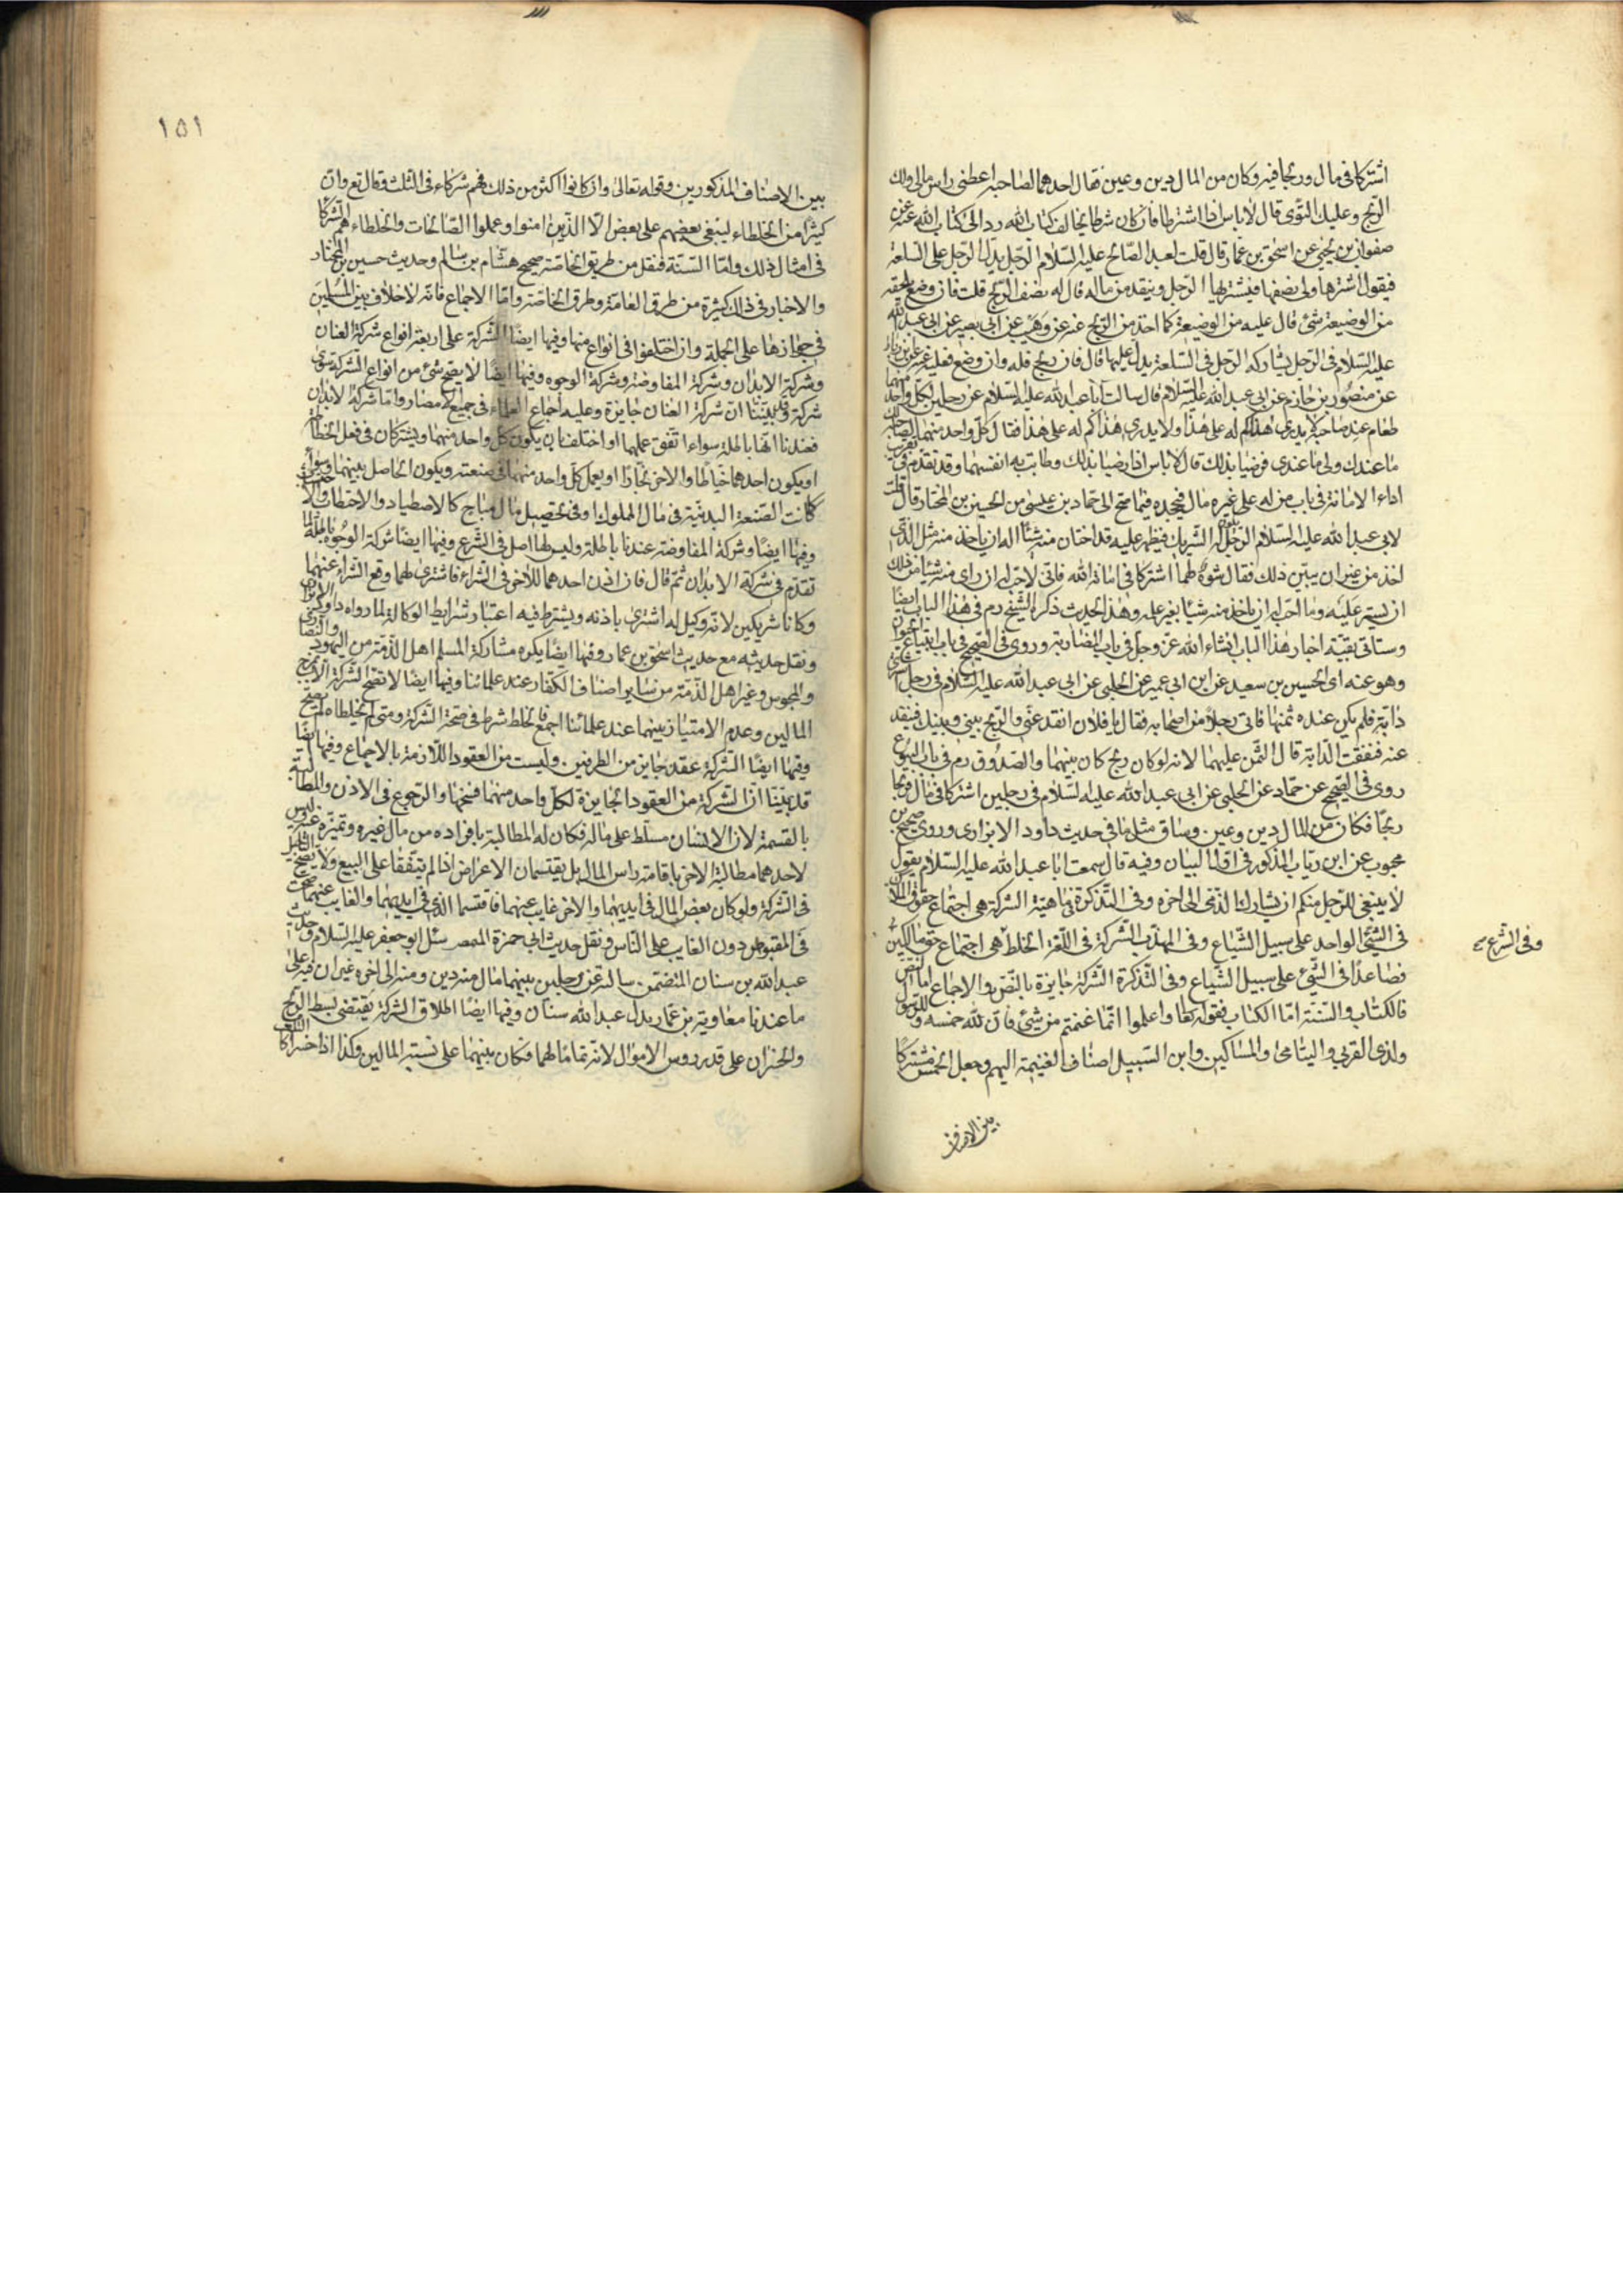 اشتركا فى مال وربحا فيه وكان من المال دين وعين فقال احدهما لصاحبه اعطنى راس مالى ولك
الربح وعليك التوى قال لا باس اذا اشترطا فاذا كان شرطا يخالف كتاب الله رد الى كتاب الله عنه عن
صفوان بن يحيى عن اسحق بن عمار قال قلت لعبد الصالح عليه السلام الرجل يدل الرجل على السلعة
فيقول اشترها ولى نصفها فيشتريها الرجل وينقد من ماله قال له نصف الربح قلت فان وضع يلحقه
من الوضيعة شئ قال عليه من الوضيعة كما اخذ من الربح عنه عن وهيب عن ابى بصير عن ابى عبد الله
عليه السلام فى الرجل يشاركه الرجل فى السلعة يدل عليها قال فان ربح فله وان وضع فعليه
عن منصور بن حازم عن ابى عبد الله عليه السلام قال سالت ابا عبد الله عليه السلام عن رجلين لكل واحد منهما
طعام عند صاحبه لا يدرى هذا كم له على هذا ولا يدرى هذا كم له على هذا فقال كل واحد منهما لصاحبه لك
ما عندك ولى ما عندى فرضيا بذلك قال لا باس اذا رضيا بذلك وطابت به انفسهما وقد تقدم
اداء الامانة فى باب من له على غيره مال فيجحده فيما صح الى حماد بن عيسى عن الحسين بن المختار قال قلت
لابى عبد الله عليه السلام الرجل يكون له الشريك فيظهر عليه قد اختان منه شيئا اله ان ياخذ منه مثل الذى
اخذ من غير ان يبين ذلك فقال شوه لهما اشتركا فى امانة الله فانى لاحب له ان راى منه شيئا من ذلك
ان يستر عليه وما احب له ان ياخذ منه شيئا بغير علمه وهذا الحديث ذكره الشيخ رم فى هذا الباب ايضا
وستاتى بقية اخبار هذا الباب انشاء الله عز وجل فى باب المضاربة وروى فى الصحيح فى باب ابتياع الحيوان
وهو عنه اى الحسين بن سعيد عن ابن ابى عمير عن الحلبى عن ابى عبد الله عليه السلام فى رجل اشترى
دابة فلم يكن عنده ثمنها فاتى رجلا من اصحابه فقال يا فلان انقد عنى والربح بينى وبينك فنقد
عنه فنفقت الدابة قال الثمن عليهما لانه لو كان ربح كان بينهما والصدوق رم فى باب البيوع
روى فى الصحيح عن حماد عن الحلبى عن ابى عبد الله عليه السلام فى رجلين اشتركا فى مال وربحا
ربحا فكان من المال دين وعين وساق مثل ما فى حديث داود الابزارى وروى صحيح بن
محبوب عن ابن رياب المذكور فى اول البيان وفيه قال سمعت ابا عبد الله عليه السلام يقول
لا ينبغى للرجل منكم ان يشارك الذمى الى اخره وفى التذكرة ماهية الشركة هى اجتماع حقوق الملاك
فى الشئ الواحد على سبيل الشياع وفى المهذب الشركة فى اللغة الخلط هى اجتماع حق مالكين
وفى الشرع صح
فصاعدا فى الشئ على سبيل الشياع وفى التذكرة الشركة جايزة بالنص والاجماع اما النص
فالكتاب والسنة اما الكتاب فقوله تعالى واعلموا انما غنمتم من شئ فان لله خمسه وللرسول
ولذى القربى واليتامى والمساكين وابن السبيل اصناف الغنيمة اليهم وجعل الخمس مشتركا
بين الاصناف
١٥١
بين الاصناف المذكورين وقوله تعالى وان كانوا اكثر من ذلك فهم شركاء فى الثلث وقال تع وان
كثيرا من الخلطاء ليبغى بعضهم على بعض الا الذين امنوا وعملوا الصالحات والخلطاء هم الشركا
فى امثال ذلك واما السنة فنقل من طريق الخاصة صحيح هشام بن سالم وحديث حسين بن المختار
والاخبار فى ذلك كثيرة من طرق العامة وطرق الخاصة واما الاجماع فانه لا خلاف بين المسلمين
فى جوازها على الجملة وان اختلفوا فى انواع منها وفيها ايضا الشركة على اربعة انواع شركة العنان
وشركة الابدان وشركة المفاوضة وشركة الوجوه وفيها ايضا لا يصح شئ من انواع الشركة سوى
شركة وقد بيننا ان شركة العنان جايزة وعليه اجماع العلماء فى جميع الامصار واما شركة الابدان
فعندنا انها باطلة سواء اتفق عملهما او اختلف بان يكون كل واحد منهما ويشتركان فى فعل الخياطة
او يكون احدهما خياطا والاخر نجارا او يعمل كل واحد منهما فى صنعته ويكون الحاصل بينهما وسواء
كانت الصنعة البدنية فى مال المملوك او فى تحصيل مال مباح كالاصطياد والاحتطاب
وفيها ايضا وشركة المفاوضة عندنا باطلة وليس لها اصل فى الشرع وفيها ايضا شركة الوجوه باطلة لما
تقدم فى شركة الابدان ثم قال فان اذن احدهما للاخر فى الشراء فاشترى لهما وقع الشراء عنهما
وكانا شريكين لانه وكيل له اشترى باذنه ويشترط فيه اعتبار شرايط الوكالة لما رواه داود الابزارى
ونقل حديثه مع حديث اسحق بن عمار وفيها ايضا يكره مشاركة المسلم اهل الذمة من اليهود والنصا
والمجوس وغير اهل الذمة من ساير اصناف الكفار عند علمائنا وفيها ايضا لا تصح الشركة الا بمزج
المالين وعدم الامتياز بينهما عند علمائنا اجمع فالخلط شرط فى صحة الشركة ومتى لم يخلطاه لم تصح
وفيها ايضا الشركة عقد جايز من الطرفين وليست من العقود اللازمة بالاجماع وفيها ايضا
قد بينا ان الشركة من العقود الجايزة لكل واحد منهما فسخها والرجوع فى الاذن والمطالبة
بالقسمة لان الانسان مسلط على ماله فكان له المطالبة بافراده من مال غيره وتميزه عنه وليس
لاحدهما مطالبة الاخر باقامة راس المال بل يقتسمان الاعراض اذا لم يتفقا على البيع ولا يصح
فى الشركة ولو كان بعض المال فى ايديهما والاخر غايب عنهما فاقتسما الذى فى ايديهما والغايب عنهما صحت
فى المقبوض دون الغايب على الناس ونقل حديث ابى حمزة سئل ابو جعفر عليه السلام وحديث
عبد الله بن سنان المتضمن سالته عن رجلين بينهما مال منه دين ومنه الى اخره غير ان فيه على
ما عندنا معاوية بن عمار بدل عبد الله سنان وفيها ايضا اطلاق الشركة يقتضى بسط الربح
والخسران على قدر روس الاموال لانه نما مالهما فكان بينهما على نسبة المالين وكذا اذا خسرا كان